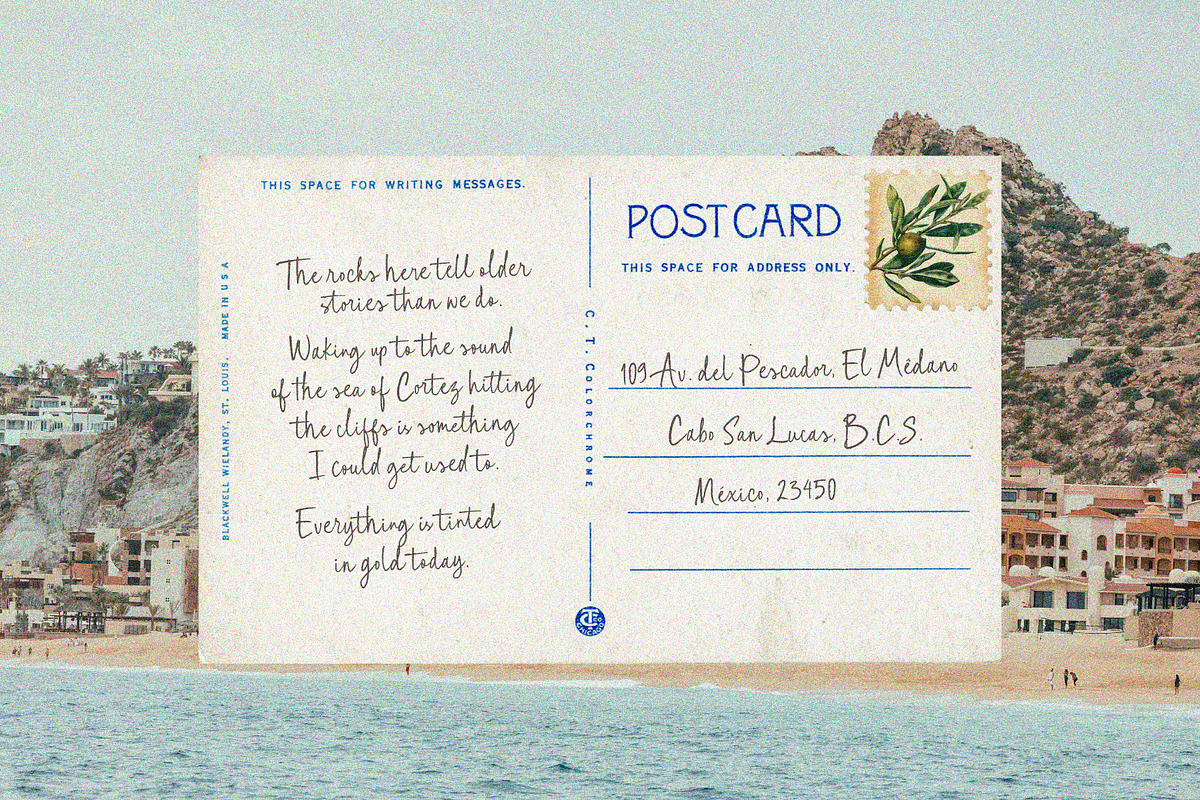 THIS SPACE FOR WRITING MESSAGES.
The rocks here tell older
stories than we do.
Waking up to the sound
of the sea of Cortez hitting
the cliffs is something
I could get used to.
Everything is tinted
in gold today.
BLACKWELL WIELANDY, ST. LOUIS. MADE IN USA
C. T. COLORCHROME
POST CARD
THIS SPACE FOR ADDRESS ONLY.
109-Av. del Pescador, El Médano
Cabo San Lucas, B.C.S.
México, 23450
CHICAGO